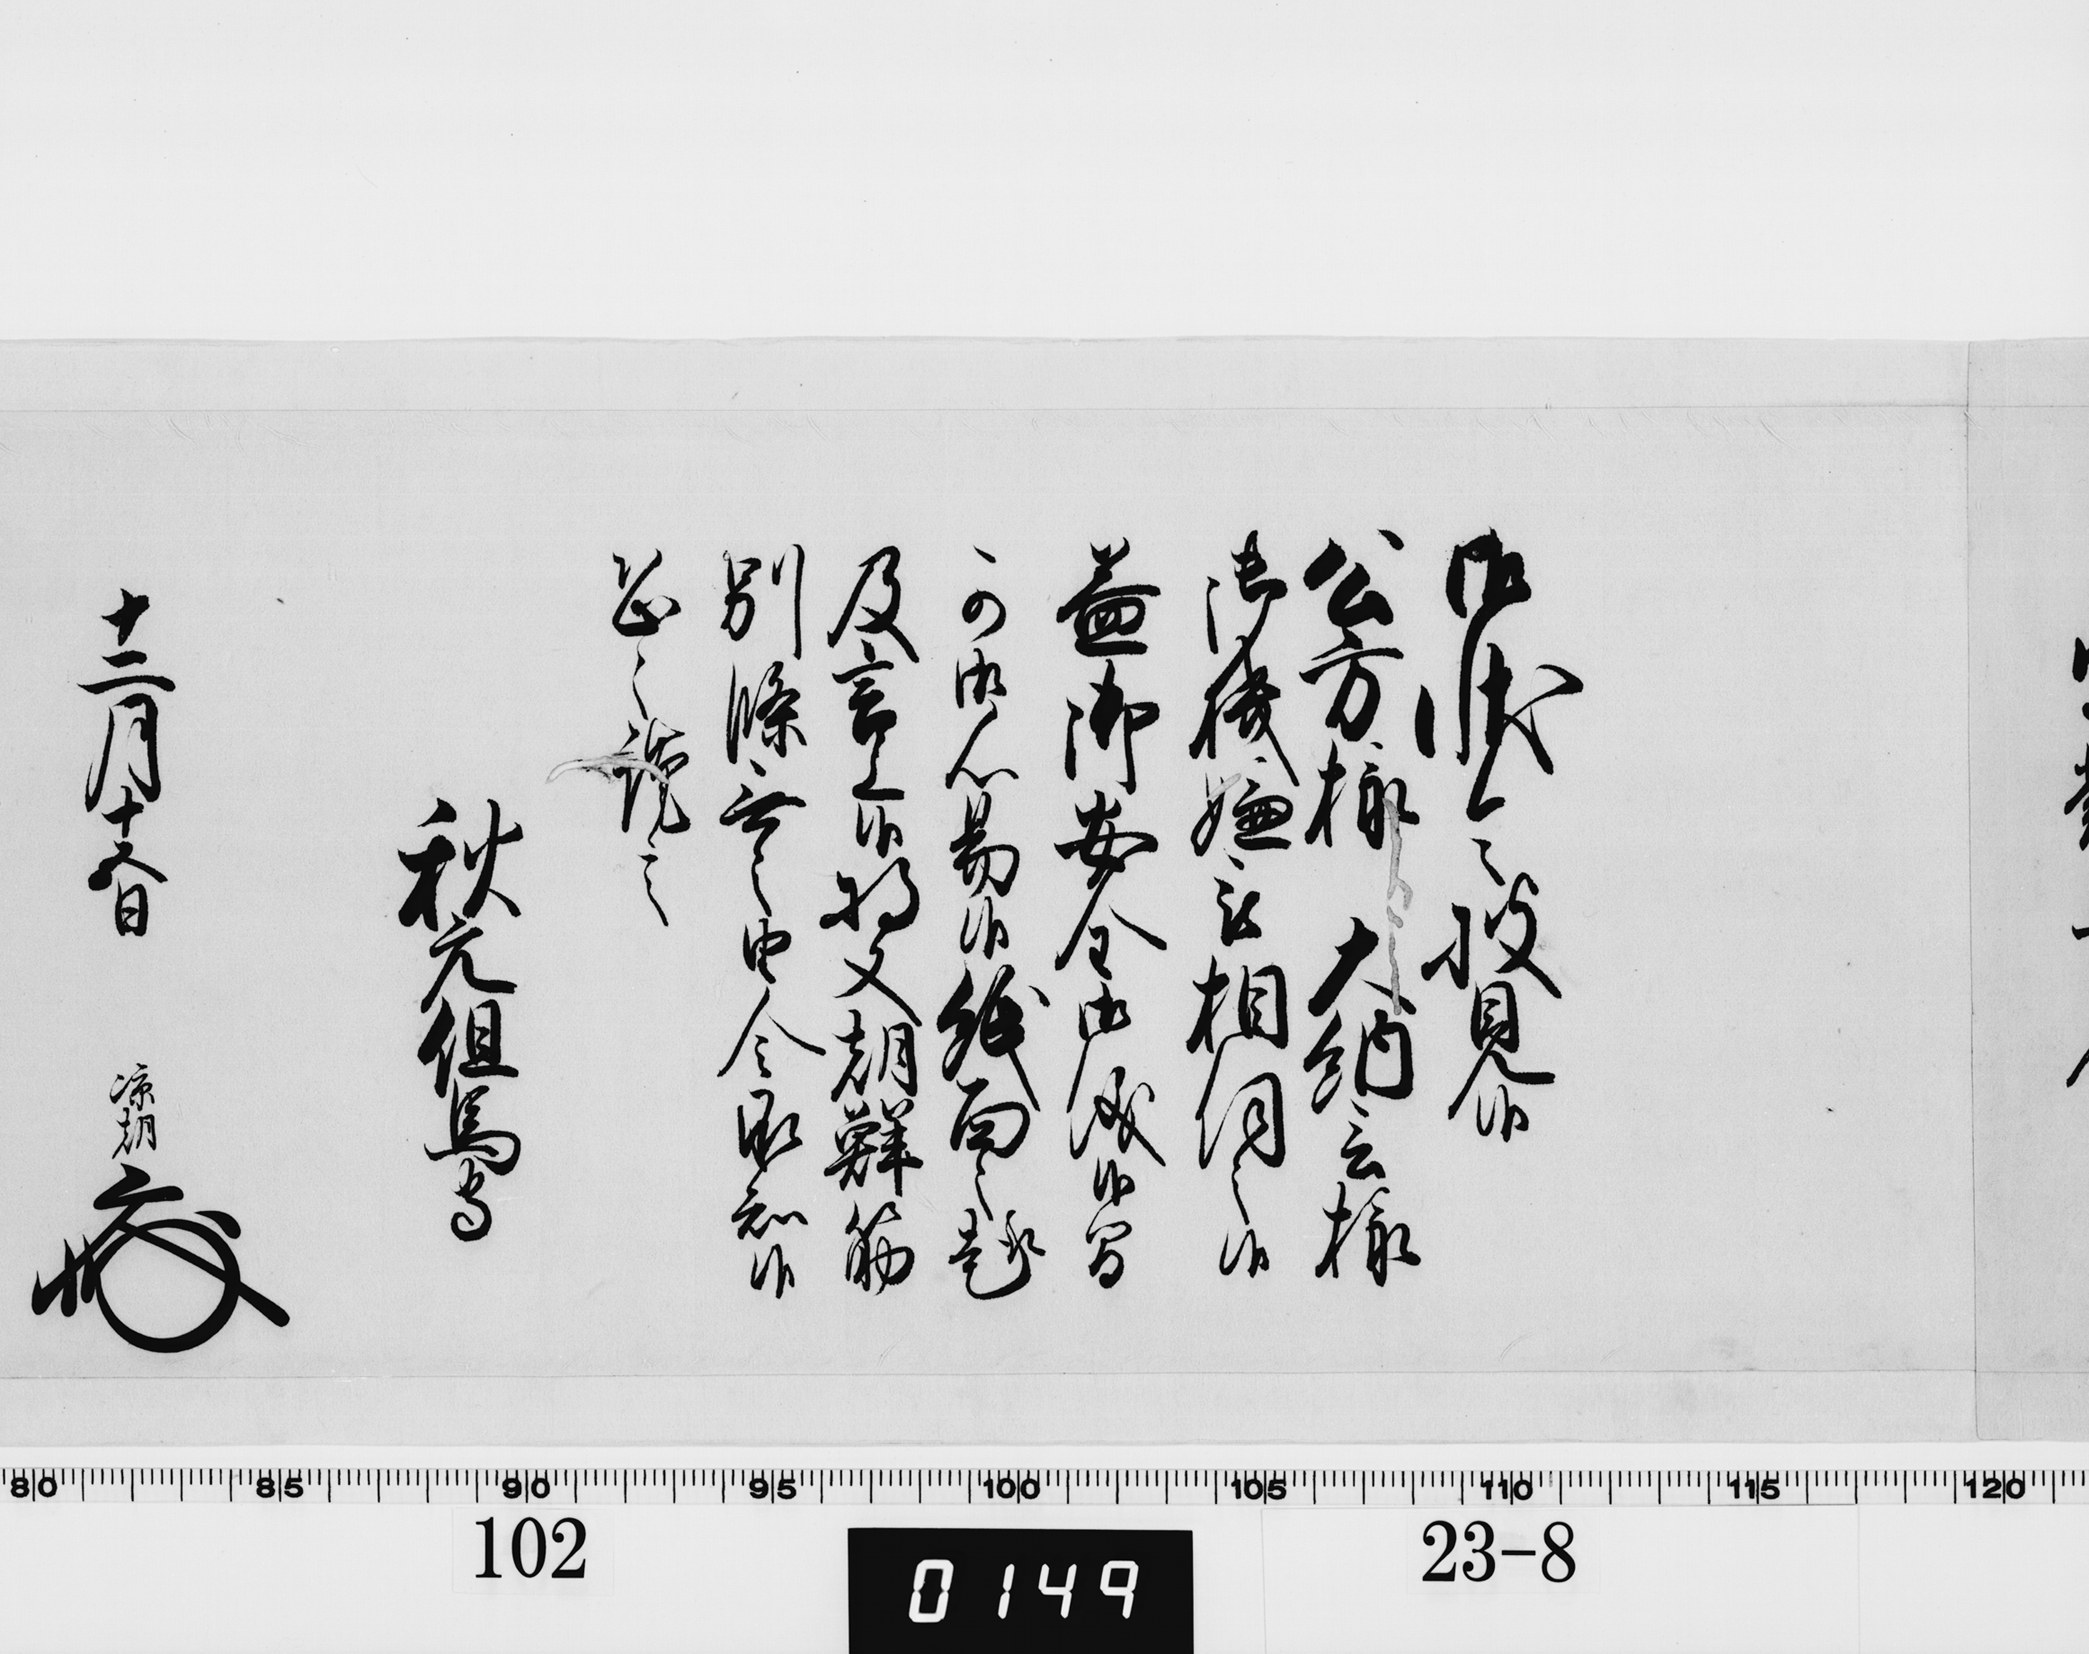 御状令披見候
公方様 大納言様
御機嫌被相伺之候
益御安全御成候間
可御心易候紙面之趣
及言上候将又朝鮮筋
別條無之由令承知候
恐々謹言
秋元但馬守
十二月十五日 凉朝
80 85 90 95 100 105 110 115 120
102
0149
23-8